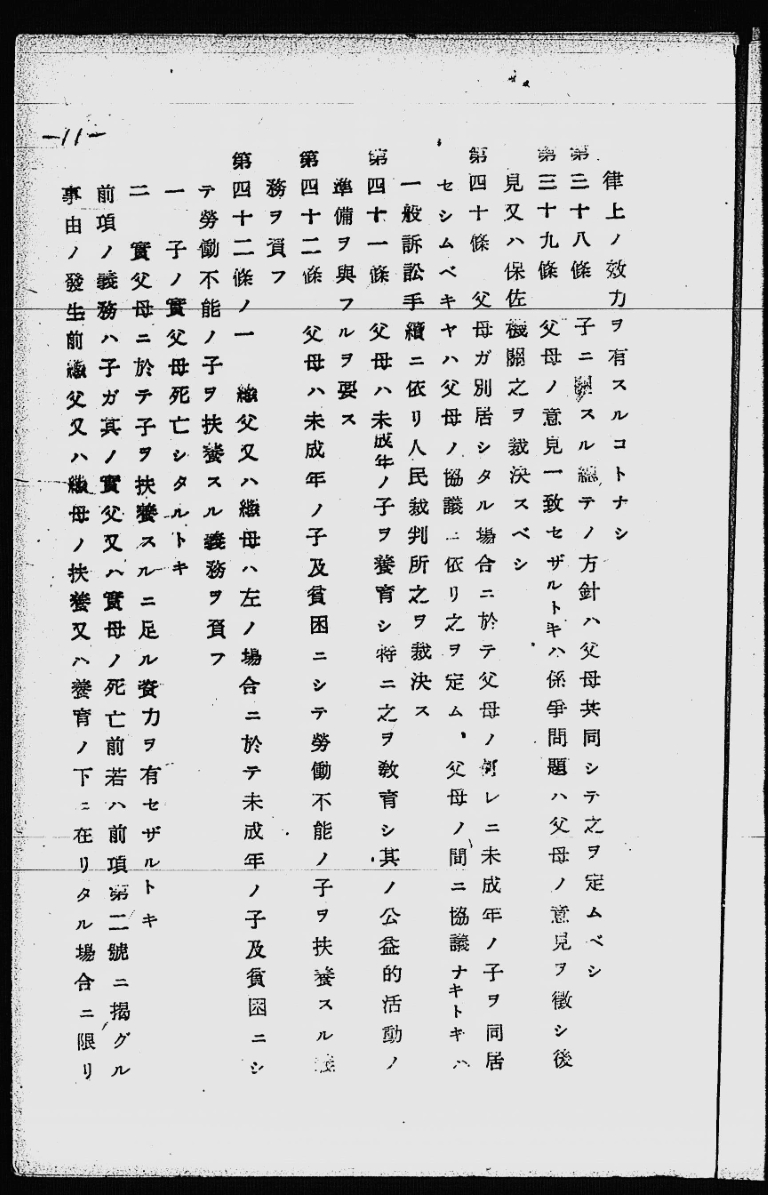 -11-
律上ノ效力ヲ有スルコトナシ
第三十八條　子ニ關スル總テノ方針ハ父母共同シテ之ヲ定ムベシ
第三十九條　父母ノ意見一致セザルトキハ係爭問題ハ父母ノ意見ヲ徵シ後
見又ハ保佐機關之ヲ裁決スベシ
第四十條　父母ガ別居シタル場合ニ於テ父母ノ何レニ未成年ノ子ヲ同居
セシムベキヤハ父母ノ協議ニ依リ之ヲ定ム、父母ノ間ニ協議ナキトキハ
一般訴訟手續ニ依リ人民裁判所之ヲ裁決ス
第四十一條　父母ハ未成年ノ子ヲ養育シ特ニ之ヲ敎育シ其ノ公益的活動ノ
準備ヲ與フルヲ要ス
第四十二條　父母ハ未成年ノ子及貧困ニシテ勞働不能ノ子ヲ扶養スル義
務ヲ負フ
第四十二條ノ一　繼父又ハ繼母ハ左ノ場合ニ於テ未成年ノ子及貧困ニシ
テ勞働不能ノ子ヲ扶養スル義務ヲ負フ
一　子ノ實父母死亡シタルトキ
二　實父母ニ於テ子ヲ扶養スルニ足ル資力ヲ有セザルトキ
前項ノ義務ハ子ガ其ノ實父又ハ實母ノ死亡前若ハ前項第二號ニ揭グル
事由ノ發生前繼父又ハ繼母ノ扶養又ハ養育ノ下ニ在リタル場合ニ限リ